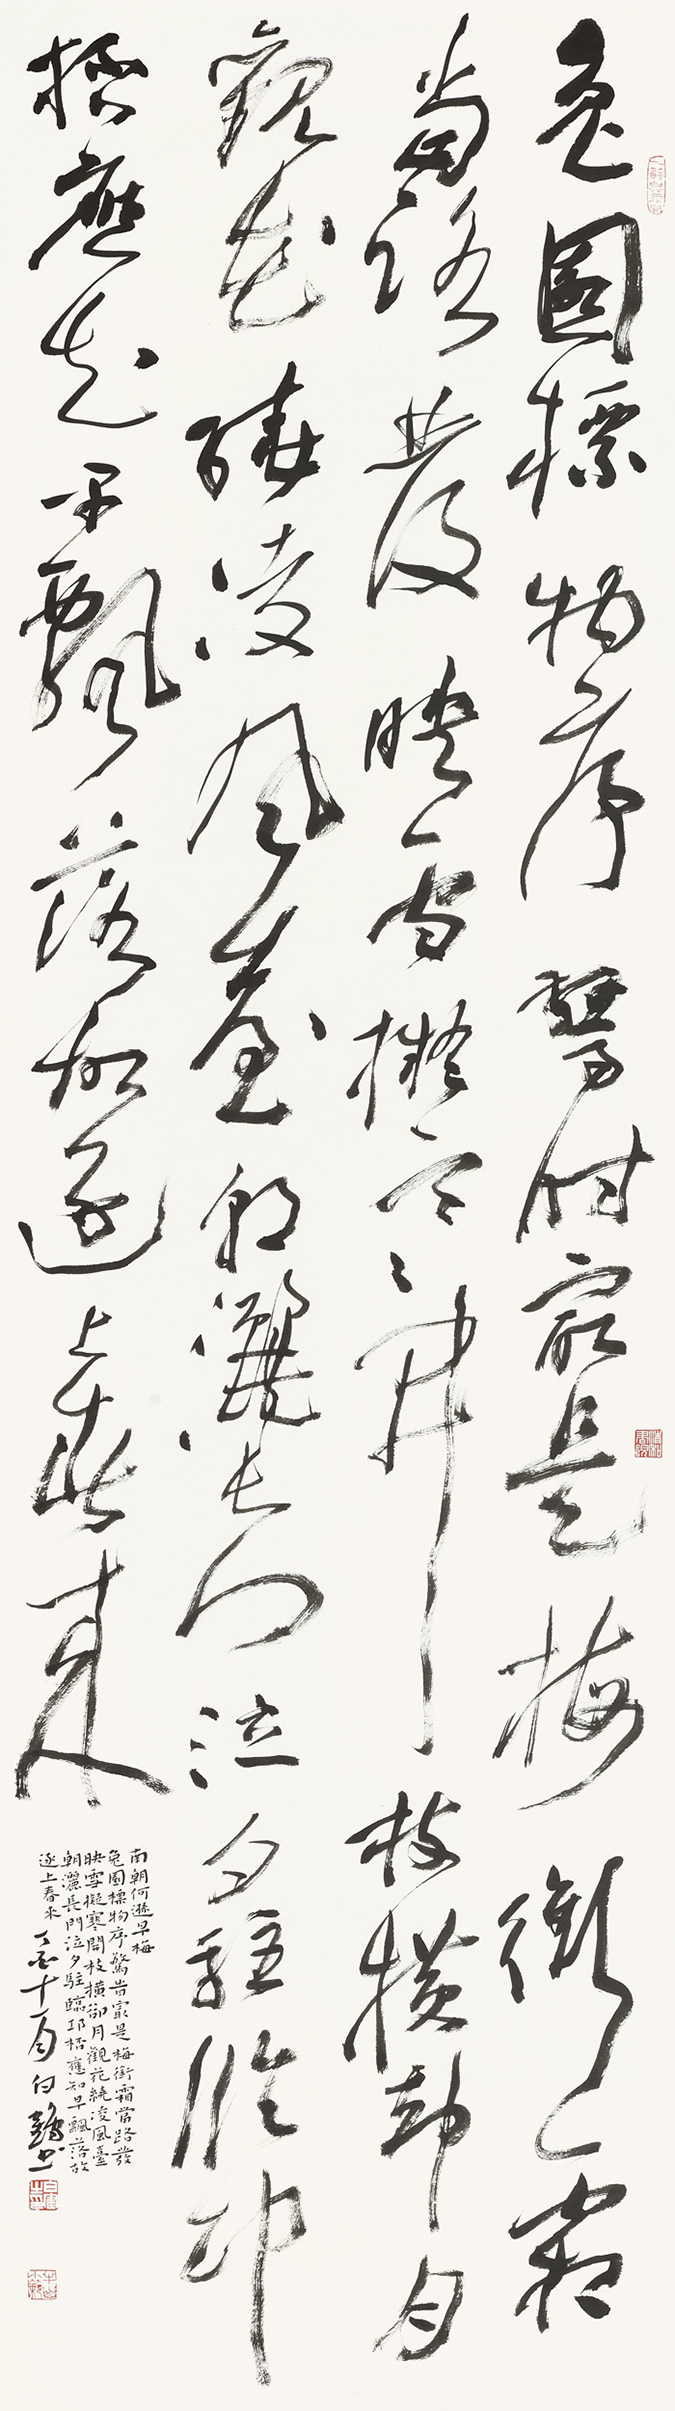 兔園標物序驚時冣是梅銜霜
當路發映雪擬寒開枝橫却月
觀花繞凌風臺朝灑長門泣夕駐臨邛
桮應知早飄落故逐上春來
南朝何遜早梅
兔園標物序驚旹冣是梅銜霜當路發
映雪擬寒開枝橫卻月觀花繞凌風臺
朝灑長門泣夕駐臨邛桮應知早飄落故
逐上春來 丁酉十一月白